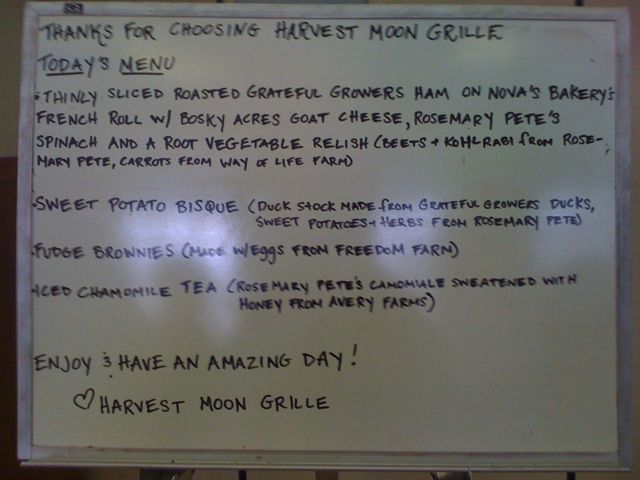 THANKS FOR CHOOSING HARVEST MOON GRILLE
TODAY'S MENU
• THINLY SLICED ROASTED GRATEFUL GROWERS HAM ON NOVA'S BAKERY'S
FRENCH ROLL W/ BOSKY ACRES GOAT CHEESE, ROSEMARY PETE'S
SPINACH AND A ROOT VEGETABLE RELISH (BEETS + KOHLRABI from ROSE-
MARY PETE, CARROTS FROM WAY OF LIFE FARM)
• SWEET POTATO BISQUE (DUCK STOCK MADE from GRATEFUL GROWERS DUCKS,
SWEET POTATOES + HERBS FROM ROSEMARY PETE)
• FUDGE BROWNIES (MADE W/EGGS FROM FREEDOM FARM)
• ICED CHAMOMILE TEA (ROSEMARY PETE'S CAMOMIALE SWEATENED WITH
HONEY FROM AVERY FARMS)
ENJOY & HAVE AN AMAZING DAY!
♡ HARVEST MOON GRILLE